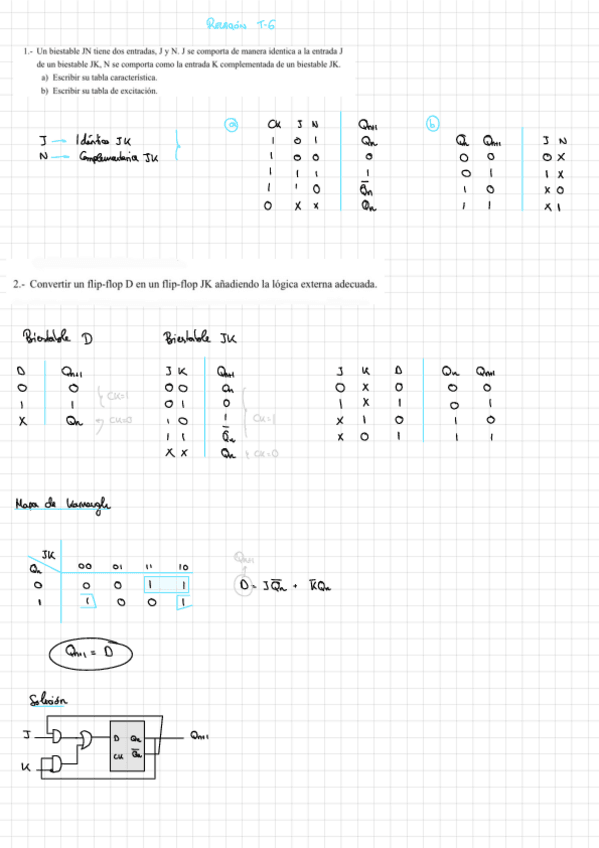 Relación T-6
1.- Un biestable JN tiene dos entradas, J y N. J se comporta de manera identica a la entrada J
de un biestable JK, N se comporta como la entrada K complementada de un biestable JK.
a) Escribir su tabla característica.
b) Escribir su tabla de excitación.
J — Idéntico JK
N — Complementaria JK
a
CK J N Qn+1
1 0 1 Qn
1 0 0 0
1 1 1 1
1 1 0 Q̅n
0 X X Qn
b
Qn Qn+1 J N
0 0 0 X
0 1 1 X
1 0 X 0
1 1 X 1
2.- Convertir un flip-flop D en un flip-flop JK añadiendo la lógica externa adecuada.
Biestable D
D Qn+1
0 0
1 1
CK=1
X Qn CK=0
Biestable JK
J K Qn+1
0 0 Qn
0 1 0
1 0 1
1 1 Q̅n
CK=1
X X Qn CK=0
J K D Qn Qn+1
0 X 0 0 0
1 X 1 0 1
X 1 0 1 0
X 0 1 1 1
Mapa de Karnaugh
JK
Qn 00 01 11 10
0 0 0 1 1
1 1 0 0 1
Qn+1
D = JQ̅n + K̅Qn
Qn+1 = D
Solución
J
K
D Qn
CK Q̅n
Qn+1